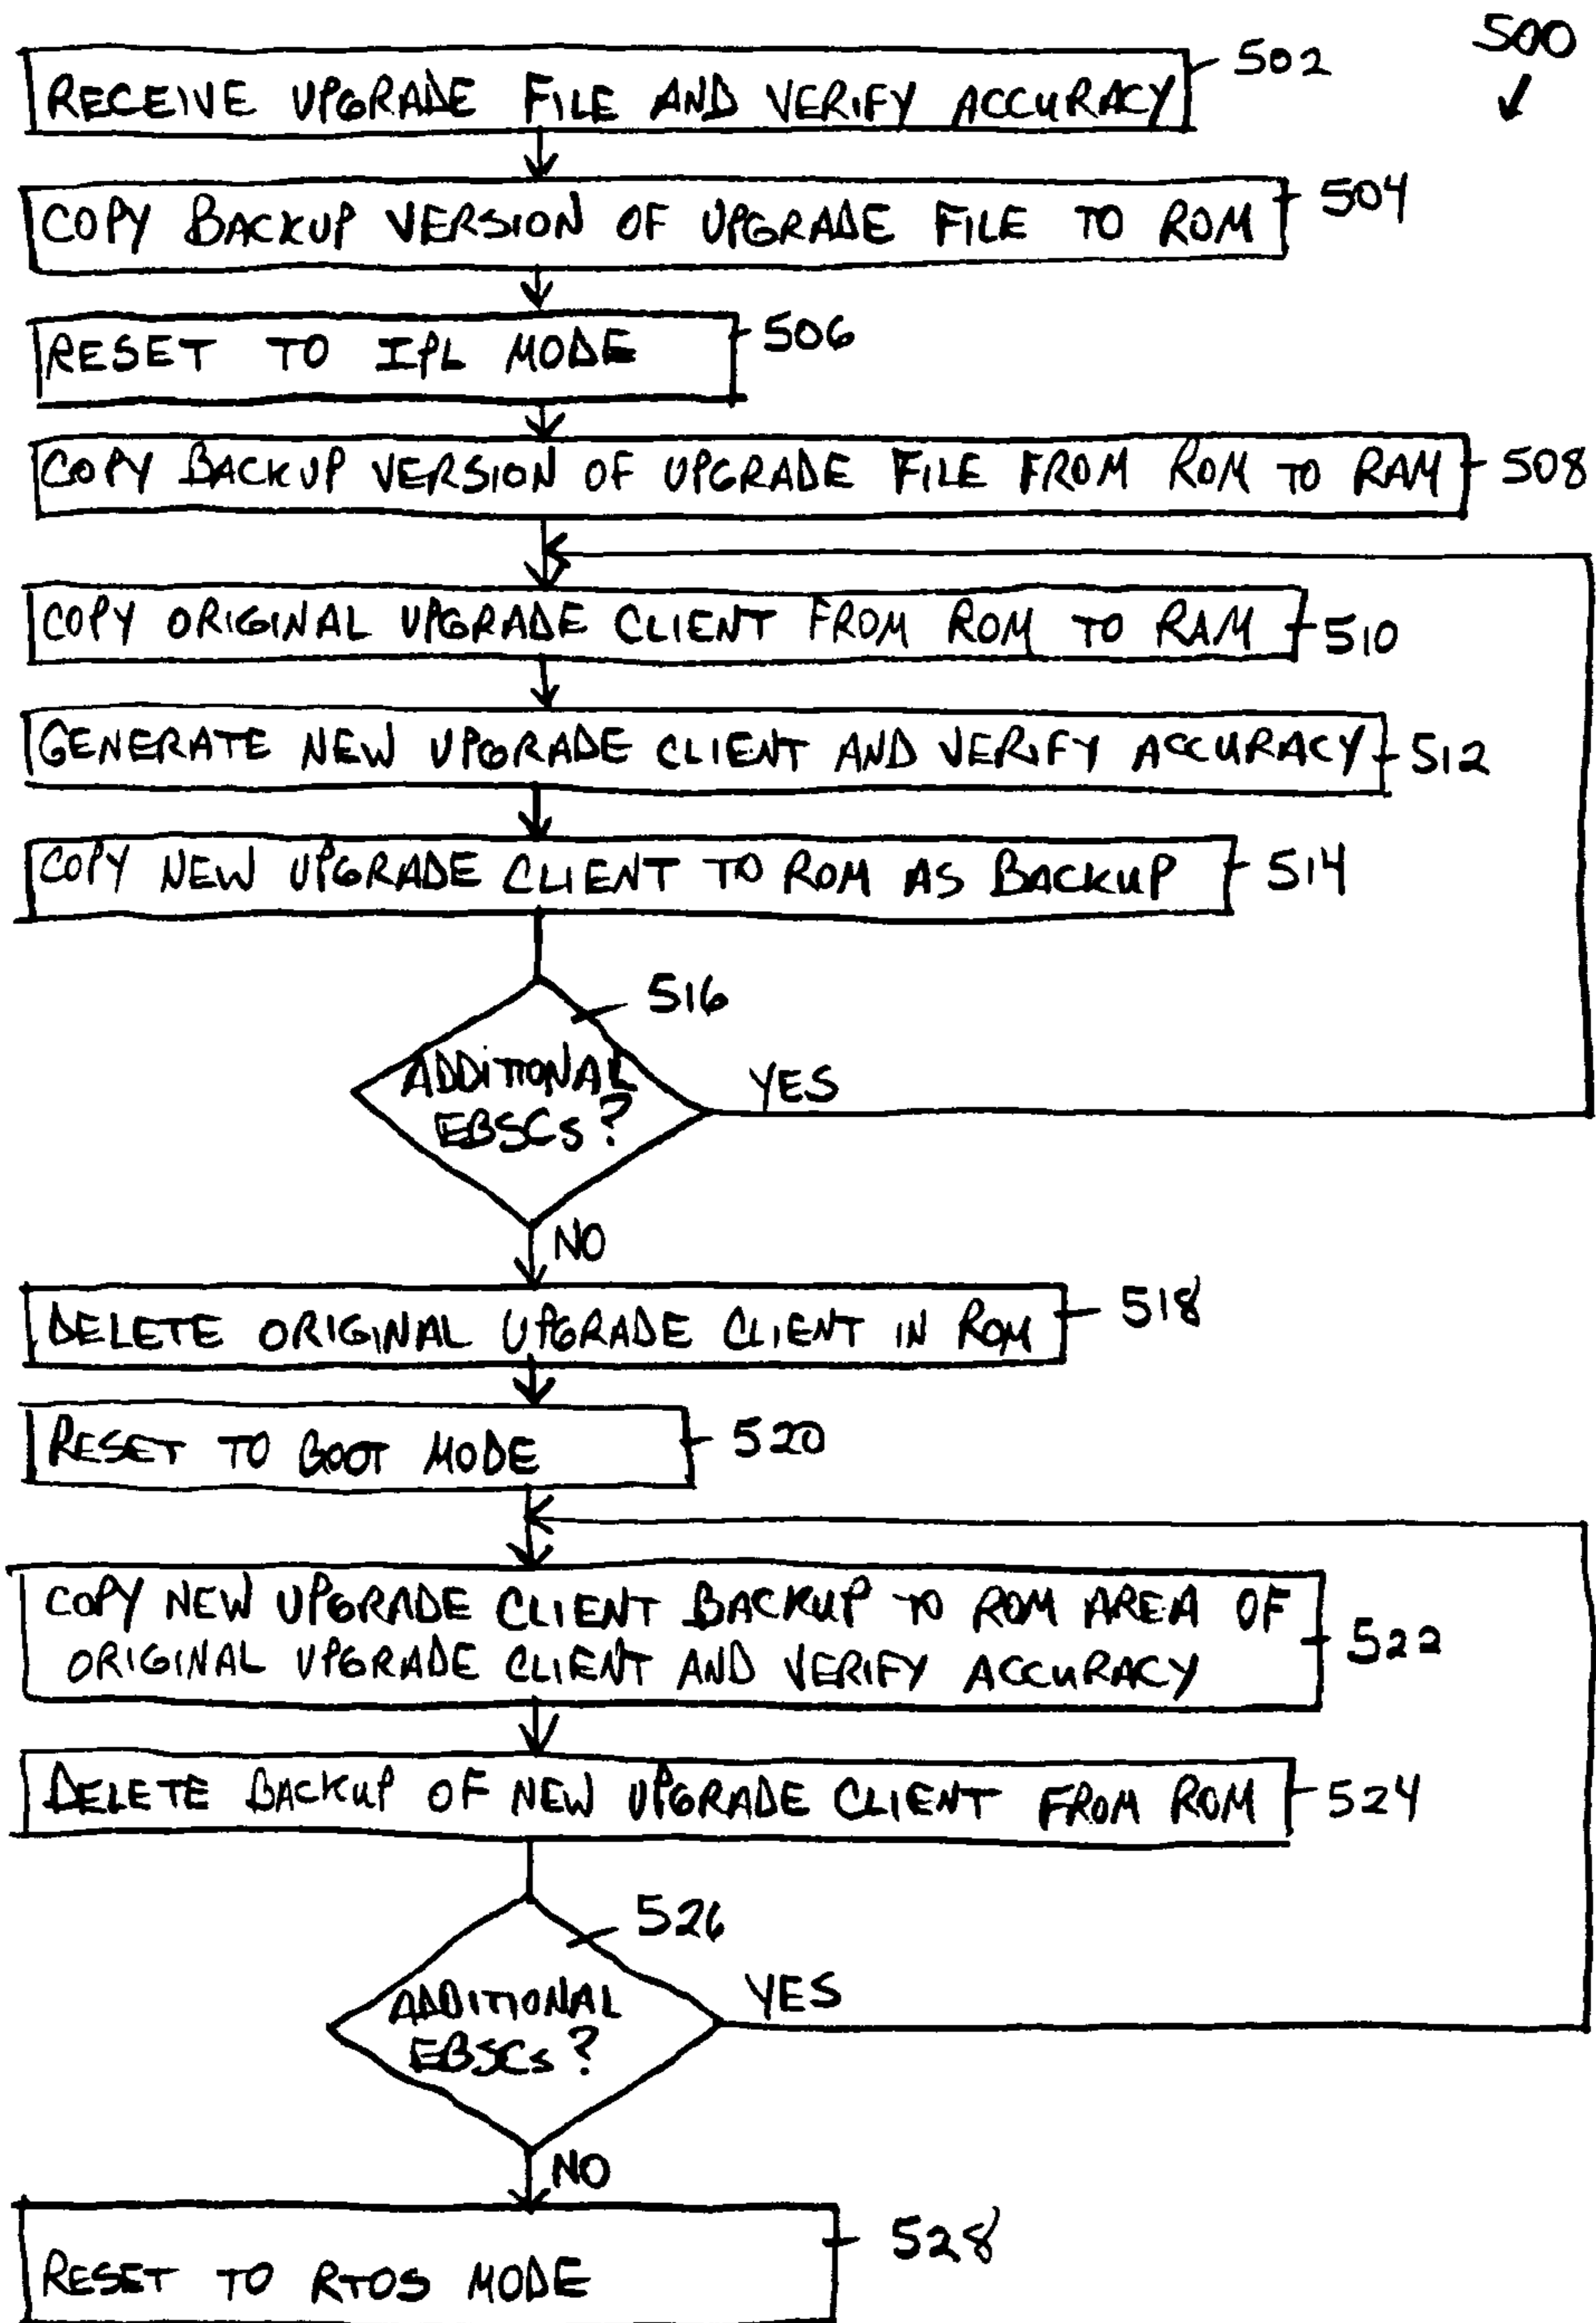 500
RECEIVE UPGRADE FILE AND VERIFY ACCURACY
502
COPY BACKUP VERSION OF UPGRADE FILE TO ROM
504
RESET TO IPL MODE
506
COPY BACKUP VERSION OF UPGRADE FILE FROM ROM TO RAM
508
COPY ORIGINAL UPGRADE CLIENT FROM ROM TO RAM
510
GENERATE NEW UPGRADE CLIENT AND VERIFY ACCURACY
512
COPY NEW UPGRADE CLIENT TO ROM AS BACKUP
514
516
ADDITIONAL
EBSCs?
YES
NO
DELETE ORIGINAL UPGRADE CLIENT IN ROM
518
RESET TO BOOT MODE
520
COPY NEW UPGRADE CLIENT BACKUP TO ROM AREA OF
ORIGINAL UPGRADE CLIENT AND VERIFY ACCURACY
522
DELETE BACKUP OF NEW UPGRADE CLIENT FROM ROM
524
526
ADDITIONAL
EBSCs?
YES
NO
RESET TO RTOS MODE
528